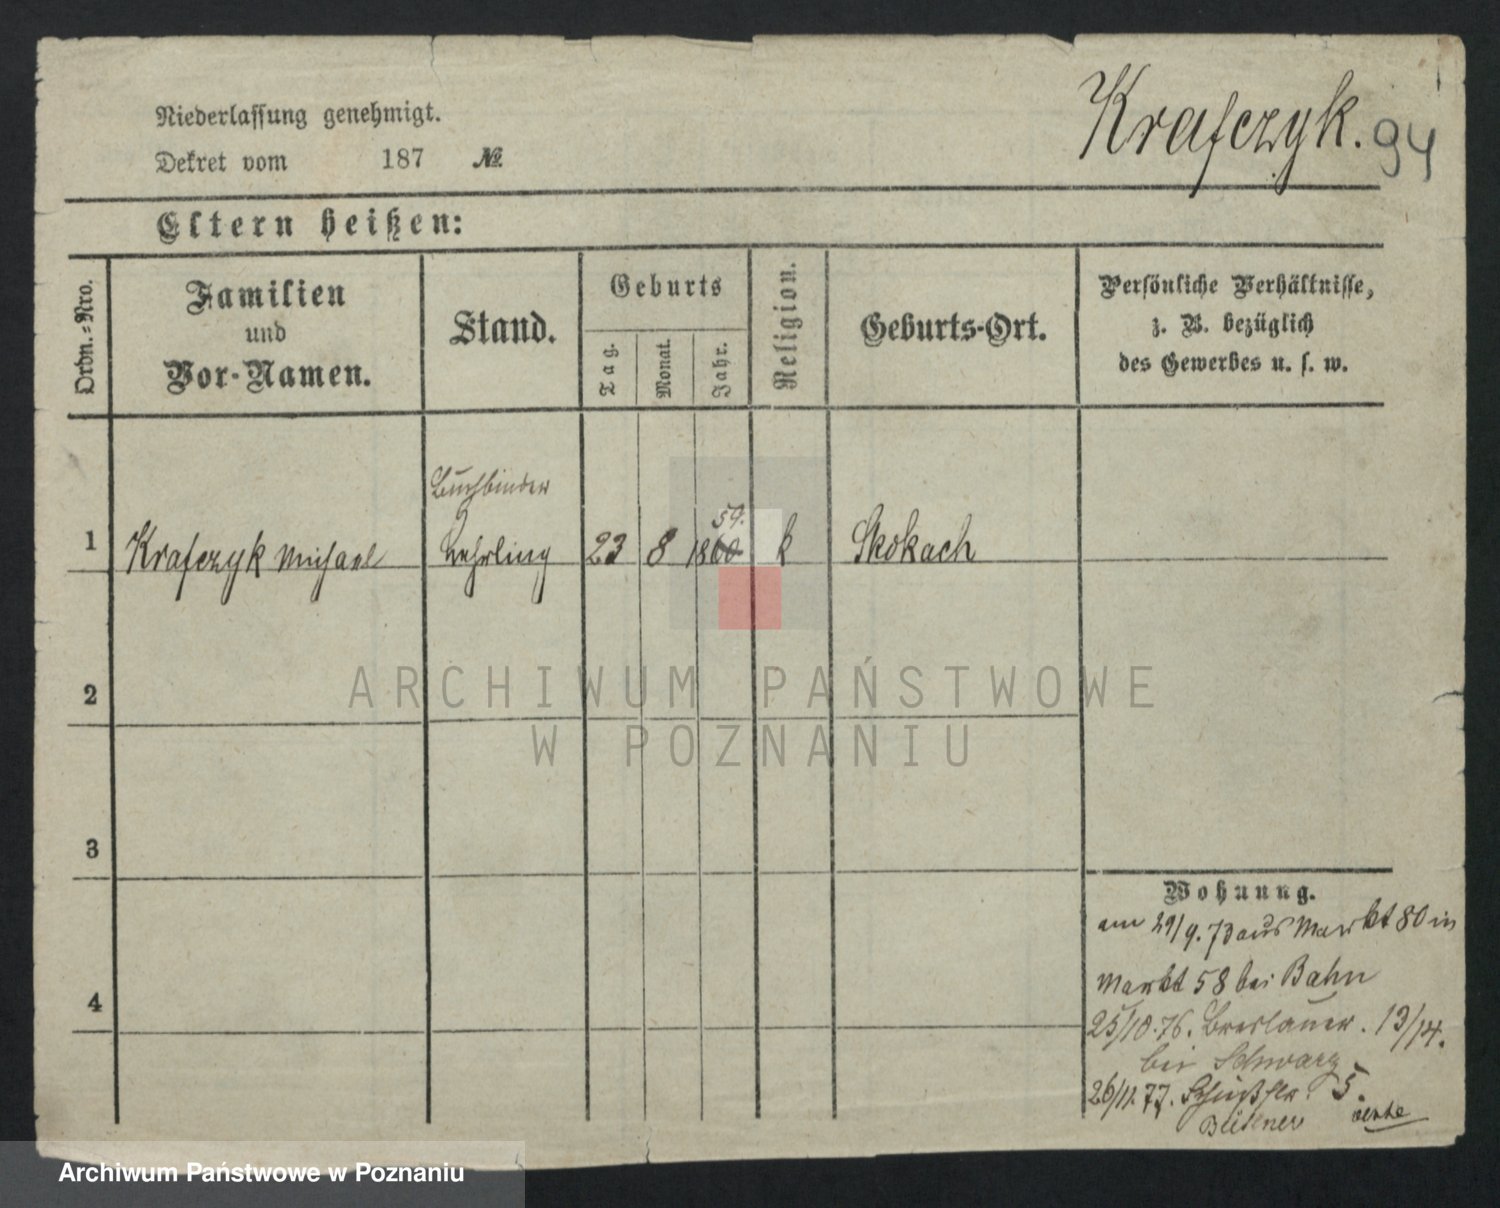 Niederlassung genehmigt.
Krafczyk. 94
Dekret vom 187 №
Eltern heißen:
Ordn.-Nro.
Familien
und
Vor-Namen.
Stand.
Geburts
Tag.
Monat.
Jahr.
Religion.
Geburts-Ort.
Persönliche Verhältnisse,
z. B. bezüglich
des Gewerbes u. s. w.
Buchbinder
59.
1 Krafczyk Michael Lehrling 23 8 1860 k Skokach
2
3
4
Wohnung.
am 29/9. 73 aus Markt 80 in
Markt 58 bei Bahn
25/10. 76. Breslauer. 13/14.
bei Schwarz
26/11. 77. 5.
ARCHIWUM PAŃSTWOWE
W POZNANIU
Archiwum Państwowe w Poznaniu